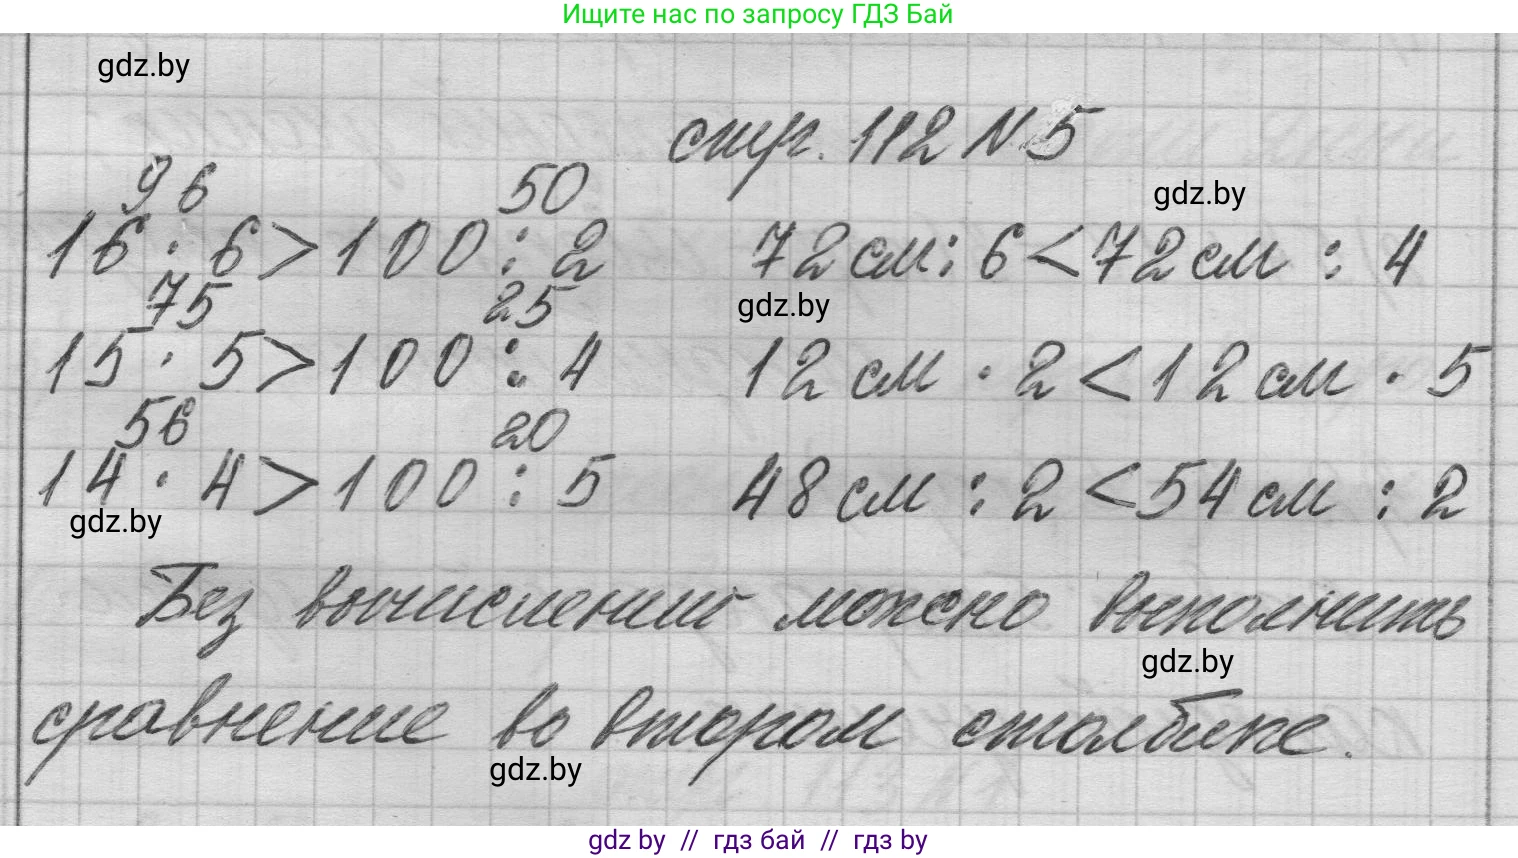 Ищите нас по запросу ГДЗ Бай
gdz.by
стр. 112 N 5
96 50
gdz.by
16 · 6 > 100 : 2 72 см : 6 < 72 см : 4
75 25
gdz.by
15 · 5 > 100 : 4 12 см · 2 < 12 см · 5
56 20
14 · 4 > 100 : 5 48 см : 2 < 54 см : 2
gdz.by
Без вычислений можно выполнить
gdz.by
сравнение во втором столбике.
gdz.by
gdz by // гдз бай // гдз by